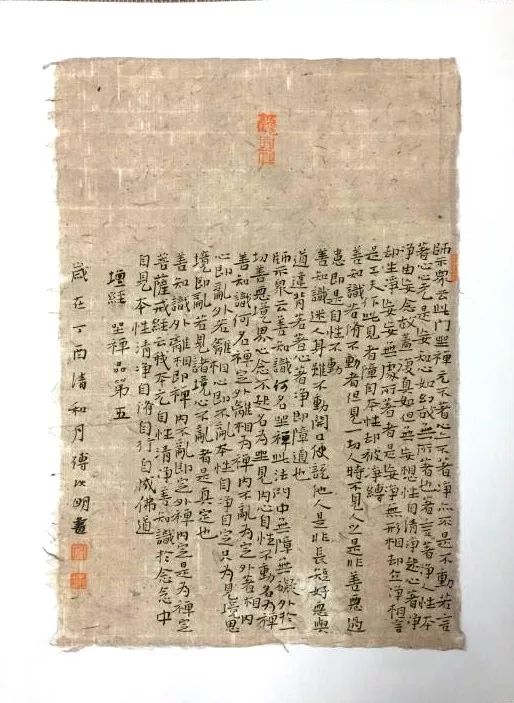 師示眾云此門坐禪元不著心亦不著淨亦不是不動若言
著心心元是妄知心如幻故無所著也若言著淨人性本
淨由妄念故蓋覆真如但無妄想性自清淨起心著淨
却生淨妄妄無處所著者是妄淨無形相却立淨相言
是工夫作此見者障自本性却被淨縛
善知識若脩不動者但見一切人時不見人之是非善惡過
患即是自性不動
善知識迷人身雖不動開口便說他人是非長短好惡與
道違背若著心著淨即障道也
師示眾云善知識何名坐禪此法門中無障無礙外於一
切善惡境界心念不起名為坐見內心自性不動名為禪
善知識何名禪定外離相為禪內不亂為定外若著相內
心即亂外若離相心即不亂本性自淨自定只為見境思
境即亂若見諸境心不亂者是真定也
善知識外離相即禪內不亂即定外禪內定是為禪定
菩薩戒經云我本元自性清淨善知識於念念中
自見本性清淨自脩自行自成佛道
壇經 坐禪品第五
歲在丁酉清和月傅明書